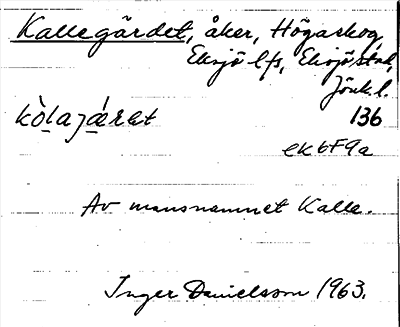 Kallegärdet, åker, Högaskog,
Eksjö lfs, Eksjö stad,
Jönk l.
kòlajǽrat 136
ek 6F9a
Av mansnamnet Kalle.
Inger Danielsson 1963.